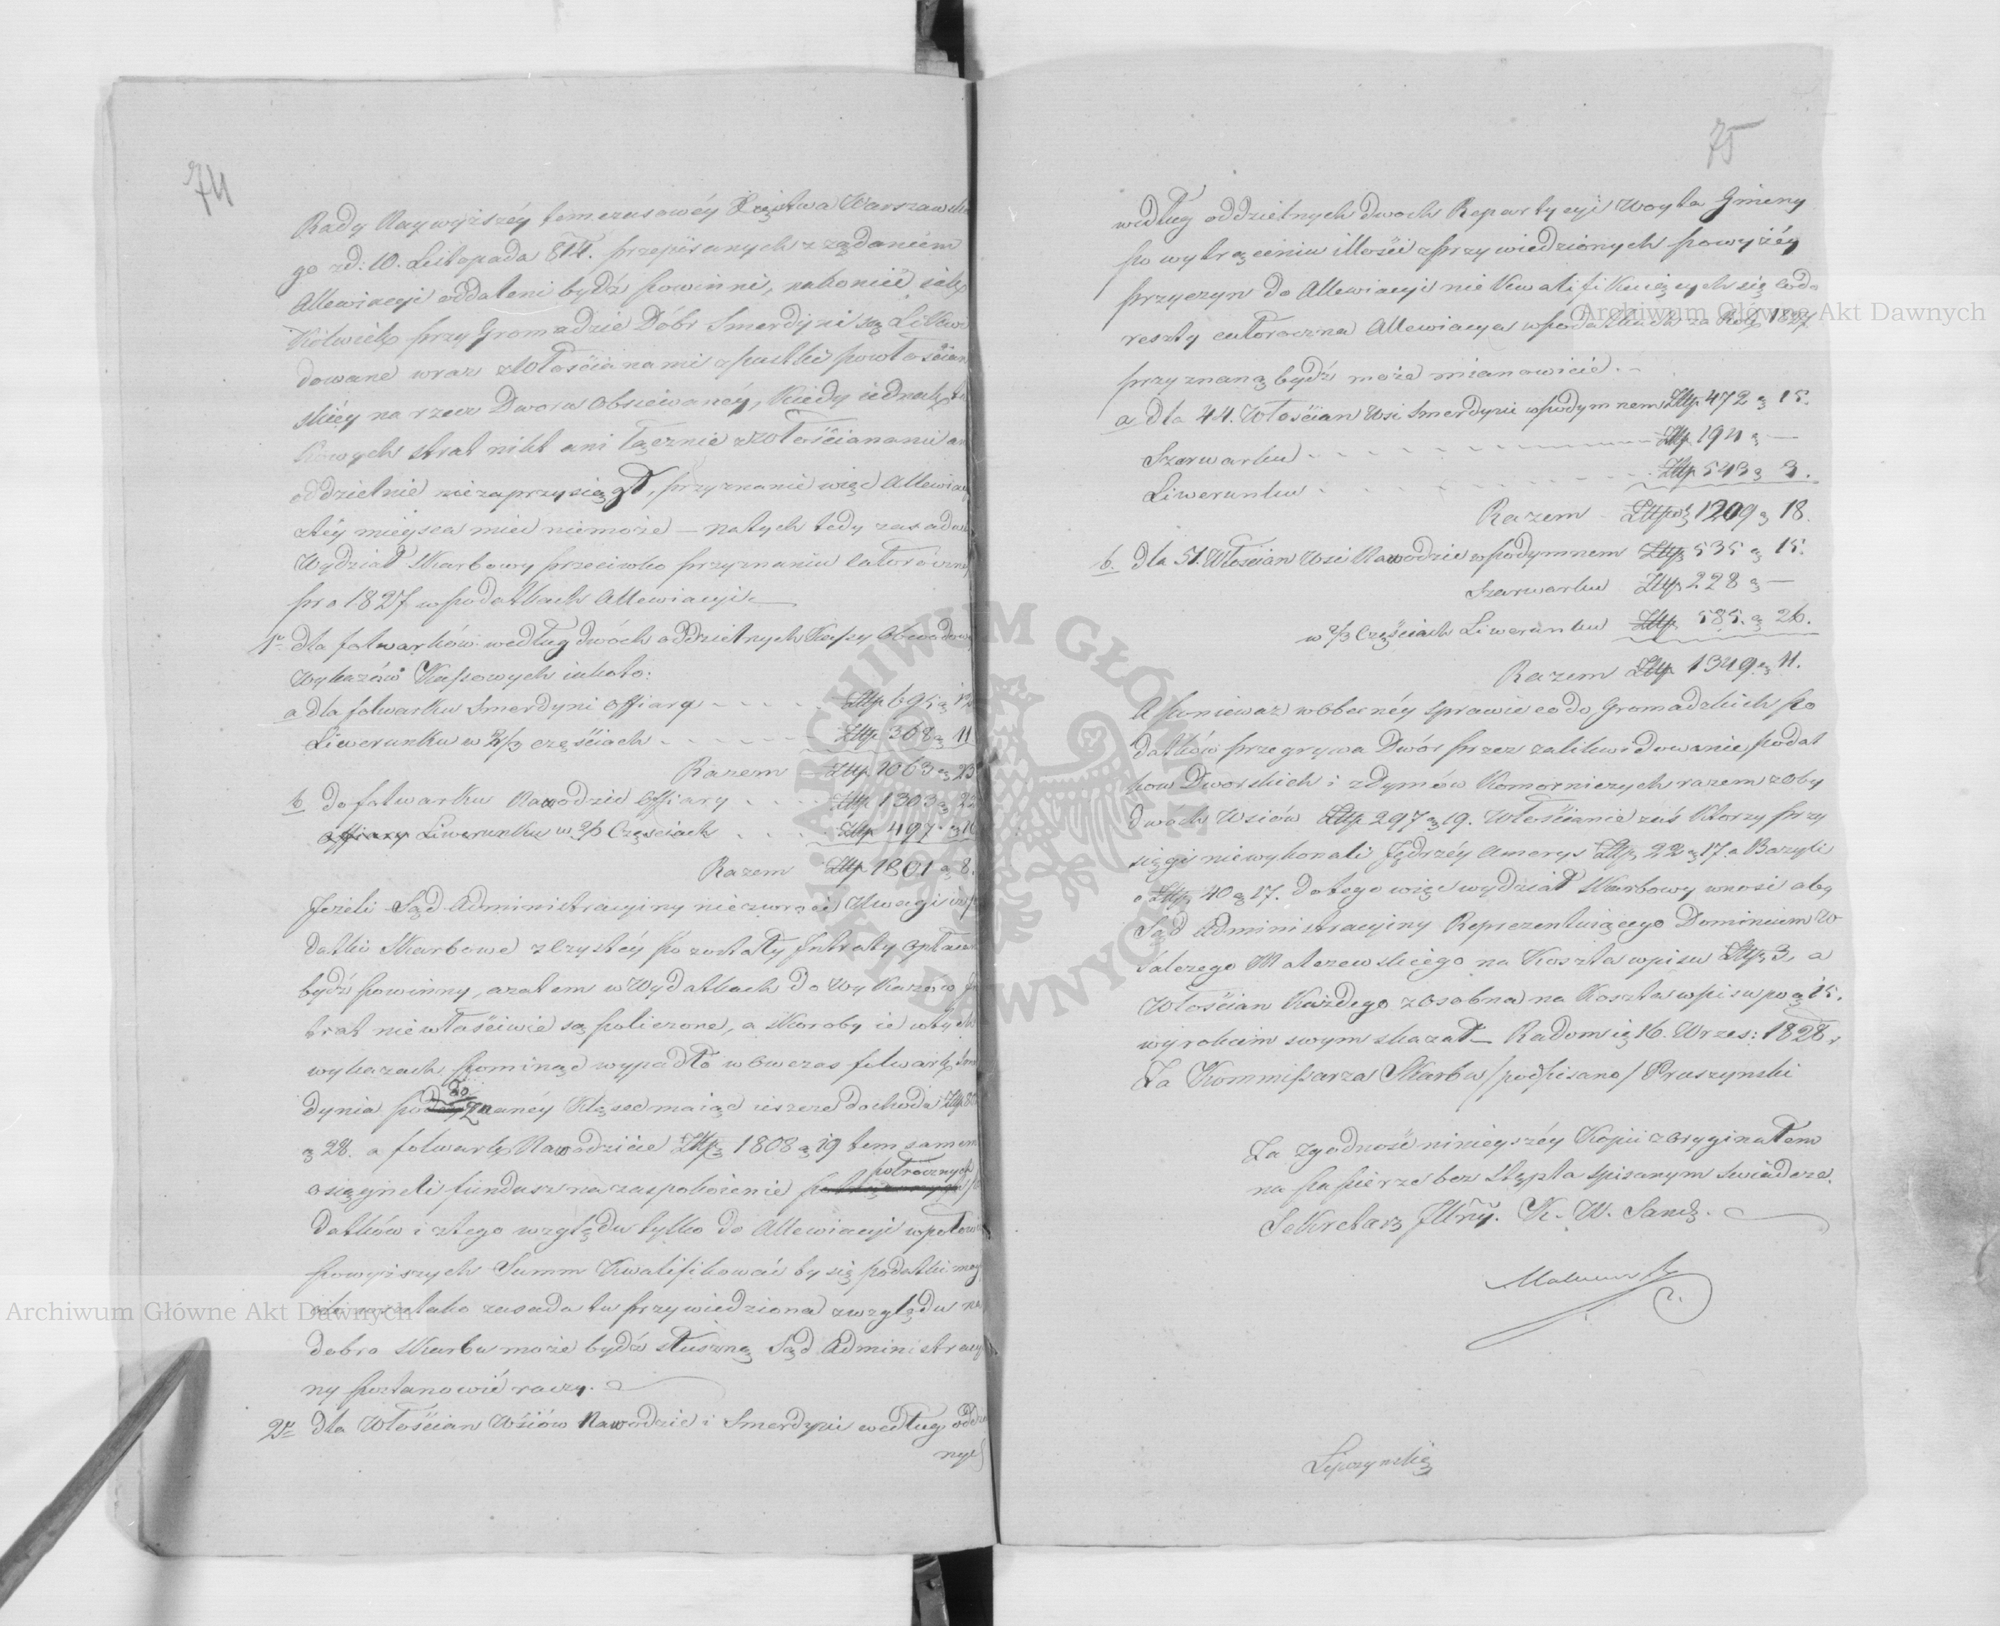 74
Rady Naywyższéy temczasowéy Xięstwa Warszawskie
go zd: 10. Listopada 814. przepisanych z żądaniem
Allewiacyi oddaleni bydź powinni, nakoniec iak
Kolwiek przy Gromadzie Dóbr Smerdyni są Likwi
dowane wraz z Włościanami z pustki powłościań
skiéy na rzecz Dworu obsiewanéy, Kiedy iednak ta
kowych strat nikt ani łącznie z Włościanami an
oddzielnie niezaprzysiągł, przyznanie więc Allewiacyi
ztéy mieysca mieć niemoże — na tych tedy zasadach
Wydział Skarbowy przeciwko przyznaniu całoroczney
pro 1827 w podatkach Allewiacyi —
1r dla folwarków według dwóch oddzielnych Kassy Obwodowey
Wykazów Kassowych iakoto:
a dla folwarku Smerdyni offiary - - - - Złtp 695 g 12
Liwerunku w 2/3 częściach - - - - Złtp 368 g 11
Razem Złtp 1063 g 23
b do folwarku Nawodzie offiary - - - - Złtp 1303 g 22
offiary Liwerunku w 2/3 Częściach - - - - Złtp 497 g 16
Razem Złtp 1801 g 8.
Jeżeli Sąd Administracyiny niezwróci Uwagi iż po
datki Skarbowe z czystéy pozostałéy Intraty opłacane
bydź powinny, a zatem w Wydatkach do Wykazów In
trat niewłaściwie są policzone, a skoroby ie w tych
wykazach pominąć wypadło wówczas folwark Smer
dynia po doznanéy Klęsce maiąc ieszcze dochodu Złtp 8
g 28. a folwark Nawodzice Złtp 1808 g 19 tem samem
osiągneli fundusz na zaspokoienie półrocznych po
datków i z tego względu tylko do Allewiacyi w połowie
powyższych Summ Kwalifikować by się podatki mog
ły wszelako zasada tu przywiedziona z względu na
dobro Skarbu może bydź słuszną Sąd Administracyi
ny postanowić raczy.
2r dla Włościan Wsiów Nawodzic i Smerdyni według oddziel
nych
75
według oddzielnych dwoch Repartycyi Woyta Gminy
po wytrąceniu illości z przywiedzionych powyżéy
przyczyn do Allewiacyi niekwalifikuiących się co do
reszty całoroczna Allewiacya w podatkach za Rok 1827
przyznaną bydź może mianowicie. -
a dla 44. Włościan Wsi Smerdyni w podymnem Złtp 472 g 15.
Szarwarku - - - - Złtp 194 g —
Liwerunku - - - - Złtp 543 g 3.
Razem Złtp 1209 g 18.
b. dla 51. Włościan Wsi Nawodzic w podymnem Złtp 535 g 15.
Szarwarku Złtp 228 g —
w 2/3 Częściach Liwerunku Złtp 585. g 26.
Razem Złtp 1349 g 11.
A ponieważ w obecnéy sprawie co do Gromadzkich po
datków przegrywa Dwór przez zalikwidowanie podat
kow Dworskich i z dymów Komorniczych razem z oby
dwóch Wsiów Złtp 297 g 19. Włościanie zaś Ktorzy przy
sięgi niewykonali Jędrzéy Amerys Złtp 22 g 17. a Bazyli
o Złtp 40 g 17. do tego więc wydział Skarbowy wnosi aby
Sąd Administracyiny Reprezentuiącego Dominium W
Salezego Materewskiego na Koszta wpisu Złtp 3, a
Włościan Każdego z osobna na Koszta wpisu po g 15.
wyrokiem swym skazał — Radom d 16. Wrzes: 1828 r
Za Kommissarza Skarbu /podpisano/ Pruszynski
Za zgodność ninieyszéy Kopii z oryginałem
na papierze bez stępla spisanym świadcze.
Sekretarz Jlny. K. W. Sand.